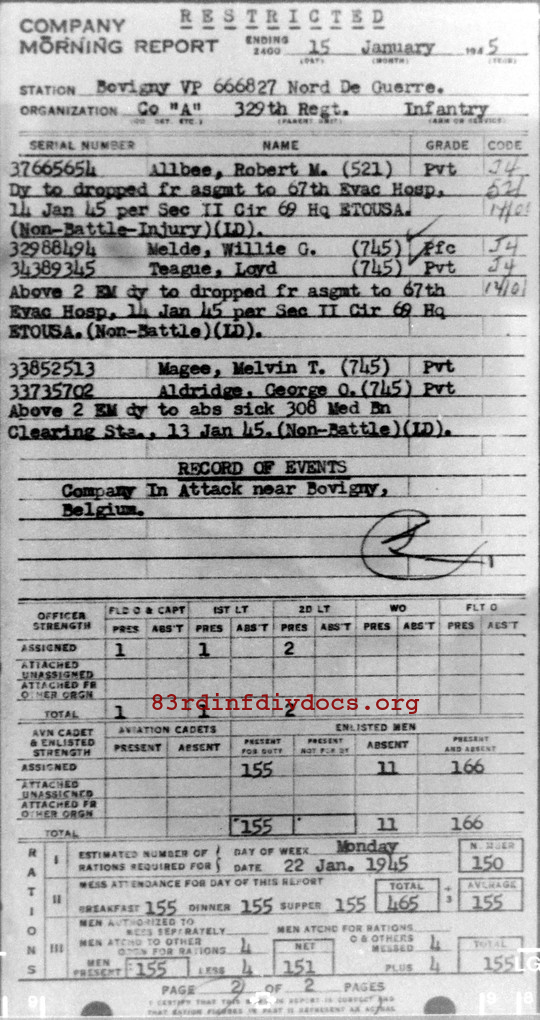 RESTRICTED
COMPANY
MORNING REPORT
ENDING 2400 15 January 1945
(DAY) (MONTH) (YEAR)
STATION Bovigny VP 666827 Nord De Guerre.
ORGANIZATION Co "A" 329th Regt. Infantry
(CO. DET. ETC.) (PARENT UNIT) (ARM OR SERVICE)
SERIAL NUMBER NAME GRADE CODE
37665654 Allbee, Robert M. (521) Pvt J4
Dy to dropped fr asgmt to 67th Evac Hosp, 521
14 Jan 45 per Sec II Cir 69 Hq ETOUSA.
(Non-Battle-Injury)(LD).
32988494 Melde, Willie G. (745) Pfc J4
34389345 Teague, Loyd (745) Pvt J4
Above 2 EM dy to dropped fr asgmt to 67th
Evac Hosp, 14 Jan 45 per Sec II Cir 69 Hq
ETOUSA.(Non-Battle)(LD).
33852513 Magee, Melvin T. (745) Pvt
33735702 Aldridge, George O.(745) Pvt
Above 2 EM dy to abs sick 308 Med Bn
Clearing Sta., 13 Jan 45.(Non-Battle)(LD).
RECORD OF EVENTS
Company In Attack near Bovigny,
Belgium.
OFFICER STRENGTH FLD O & CAPT 1ST LT 2D LT WO FLT O
PRES ABS'T PRES ABS'T PRES ABS'T PRES ABS'T PRES ABS'T
ASSIGNED 1 1 2
ATTACHED UNASSIGNED
ATTACHED FR OTHER ORGN
83rdinfdivdocs.org
TOTAL 1 1 2
AVN CADET & ENLISTED STRENGTH AVIATION CADETS ENLISTED MEN
PRESENT ABSENT PRESENT FOR DUTY PRESENT NOT FOR DY ABSENT PRESENT AND ABSENT
ASSIGNED 155 11 166
ATTACHED UNASSIGNED
ATTACHED FR OTHER ORGN
TOTAL 155 11 166
RATIONS
I ESTIMATED NUMBER OF RATIONS REQUIRED FOR DAY OF WEEK Monday NUMBER
DATE 22 Jan. 1945 150
II MESS ATTENDANCE FOR DAY OF THIS REPORT TOTAL ÷ 3 AVERAGE
BREAKFAST 155 DINNER 155 SUPPER 155 465 155
III MEN AUTHORIZED TO MESS SEPARATELY MEN ATCHD FOR RATIONS
MEN ATCHD TO OTHER ORGN FOR RATIONS 4 NET O & OTHERS MESSED 4 TOTAL
MEN PRESENT 155 LESS 4 151 PLUS 4 155
PAGE 2 OF 2 PAGES
I CERTIFY THAT THIS MORNING REPORT IS CORRECT AND
THAT RATION FIGURES IN PART III REPRESENT AN ACTUAL